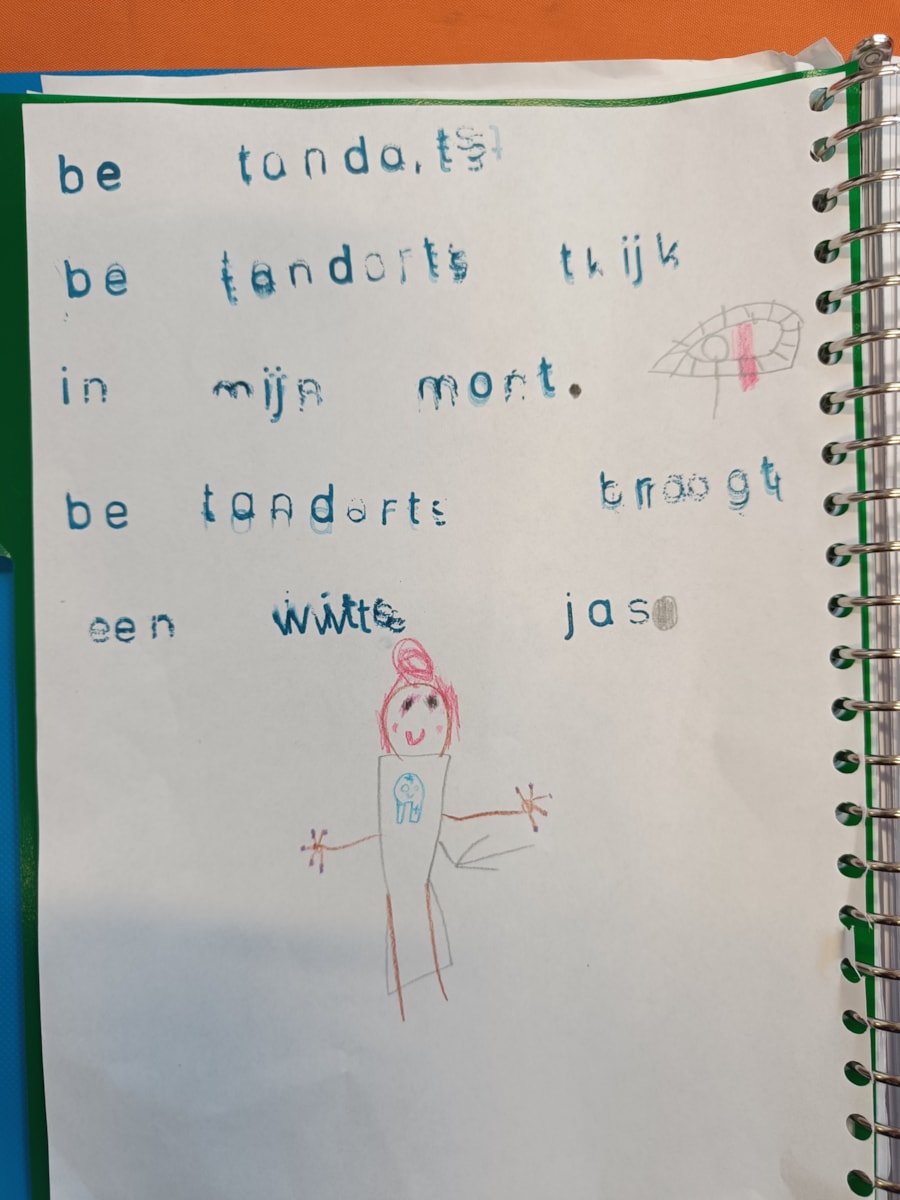 be tandarts
be tandarts tkijk
in mijn mont.
be tandarts traagt
een witte jas.